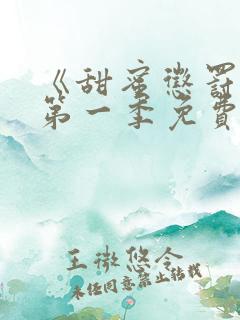 《甜蜜懲罰
第一季免費
王微悠今
未经同意禁止转载